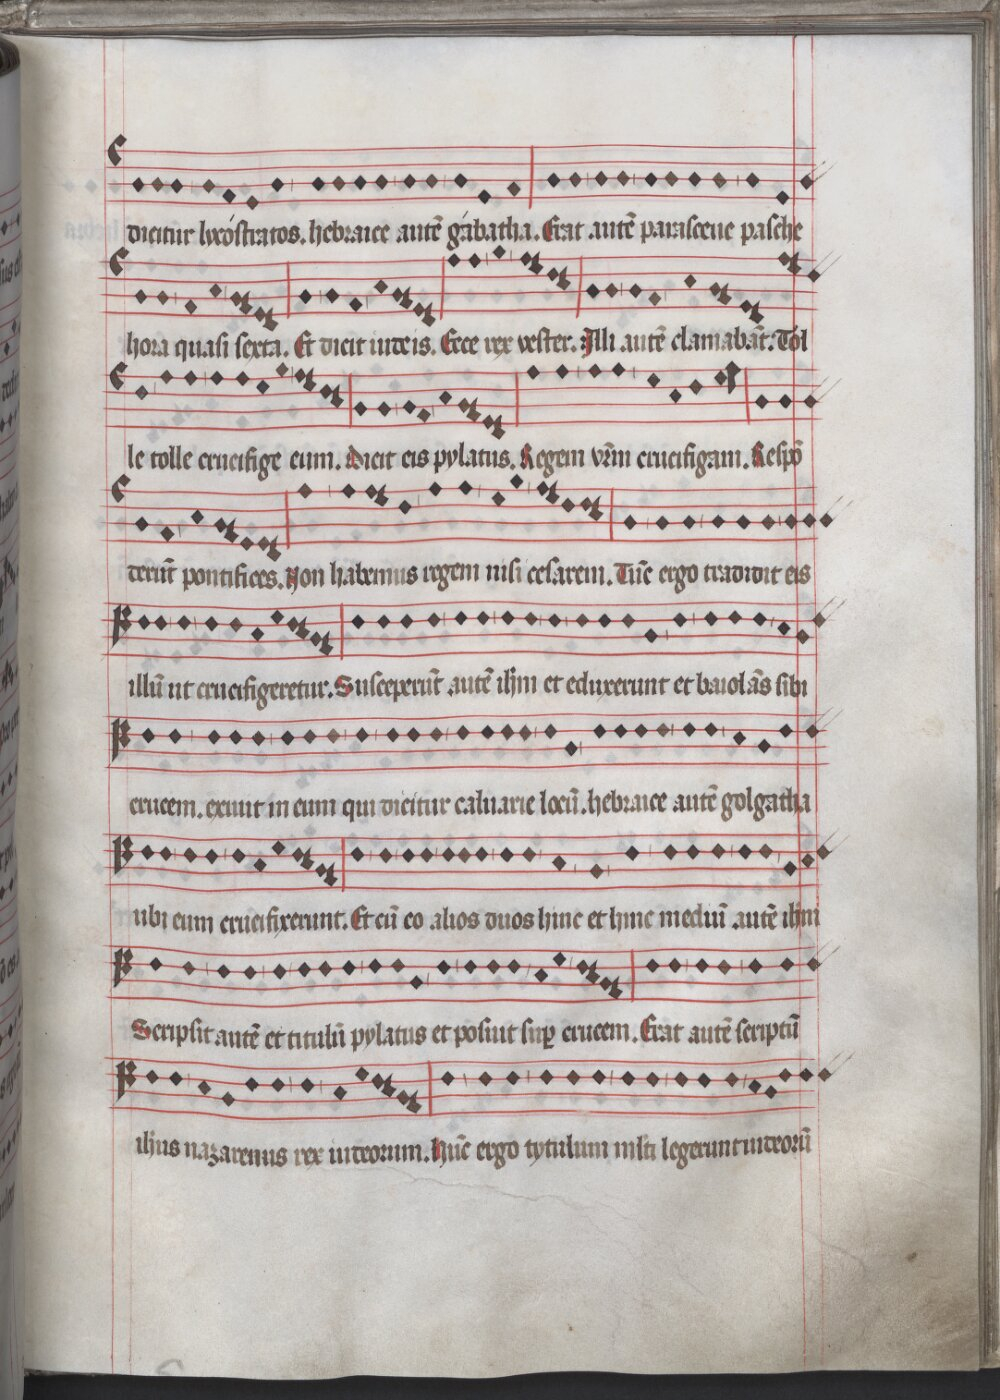 dicitur lyxóstratos. hebraice autē gábatha. Erat autē parasceue pasche
hora quasi sexta. Et dicit iudeis. Ecce rex vester. Illi autē clamabāt. Tol
le tolle crucifige eum. Dicit eis pylatus. Regem vr̄m crucifigam. Respō
derūt pontifices. Non habemus regem nisi cesarem. Tūc ergo tradidit eis
illū ut crucifigeretur. Susceperūt autē ihm et eduxerunt et baiolās sibi
crucem. exiuit in eum qui dicitur caluarie locū. hebraice autē golgatha
ubi eum crucifixerunt. Et cū eo alios duos hinc et hinc mediū autē ihm
Scripsit autē et titulū pylatus et posuit sup crucem. Erat autē scriptū
ihus nazarenus rex iudeorum. Hūc ergo tytulum mlti legerunt iudeorū